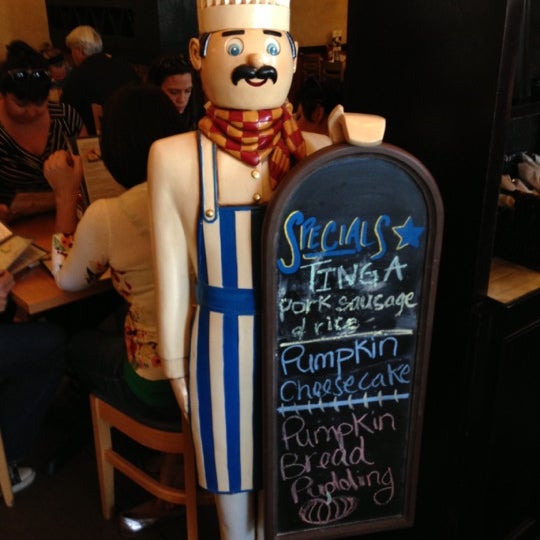 SPECIALS
TINGA
Pork sausage
d rice
Pumpkin
Cheesecake
Pumpkin
Bread
Pudding